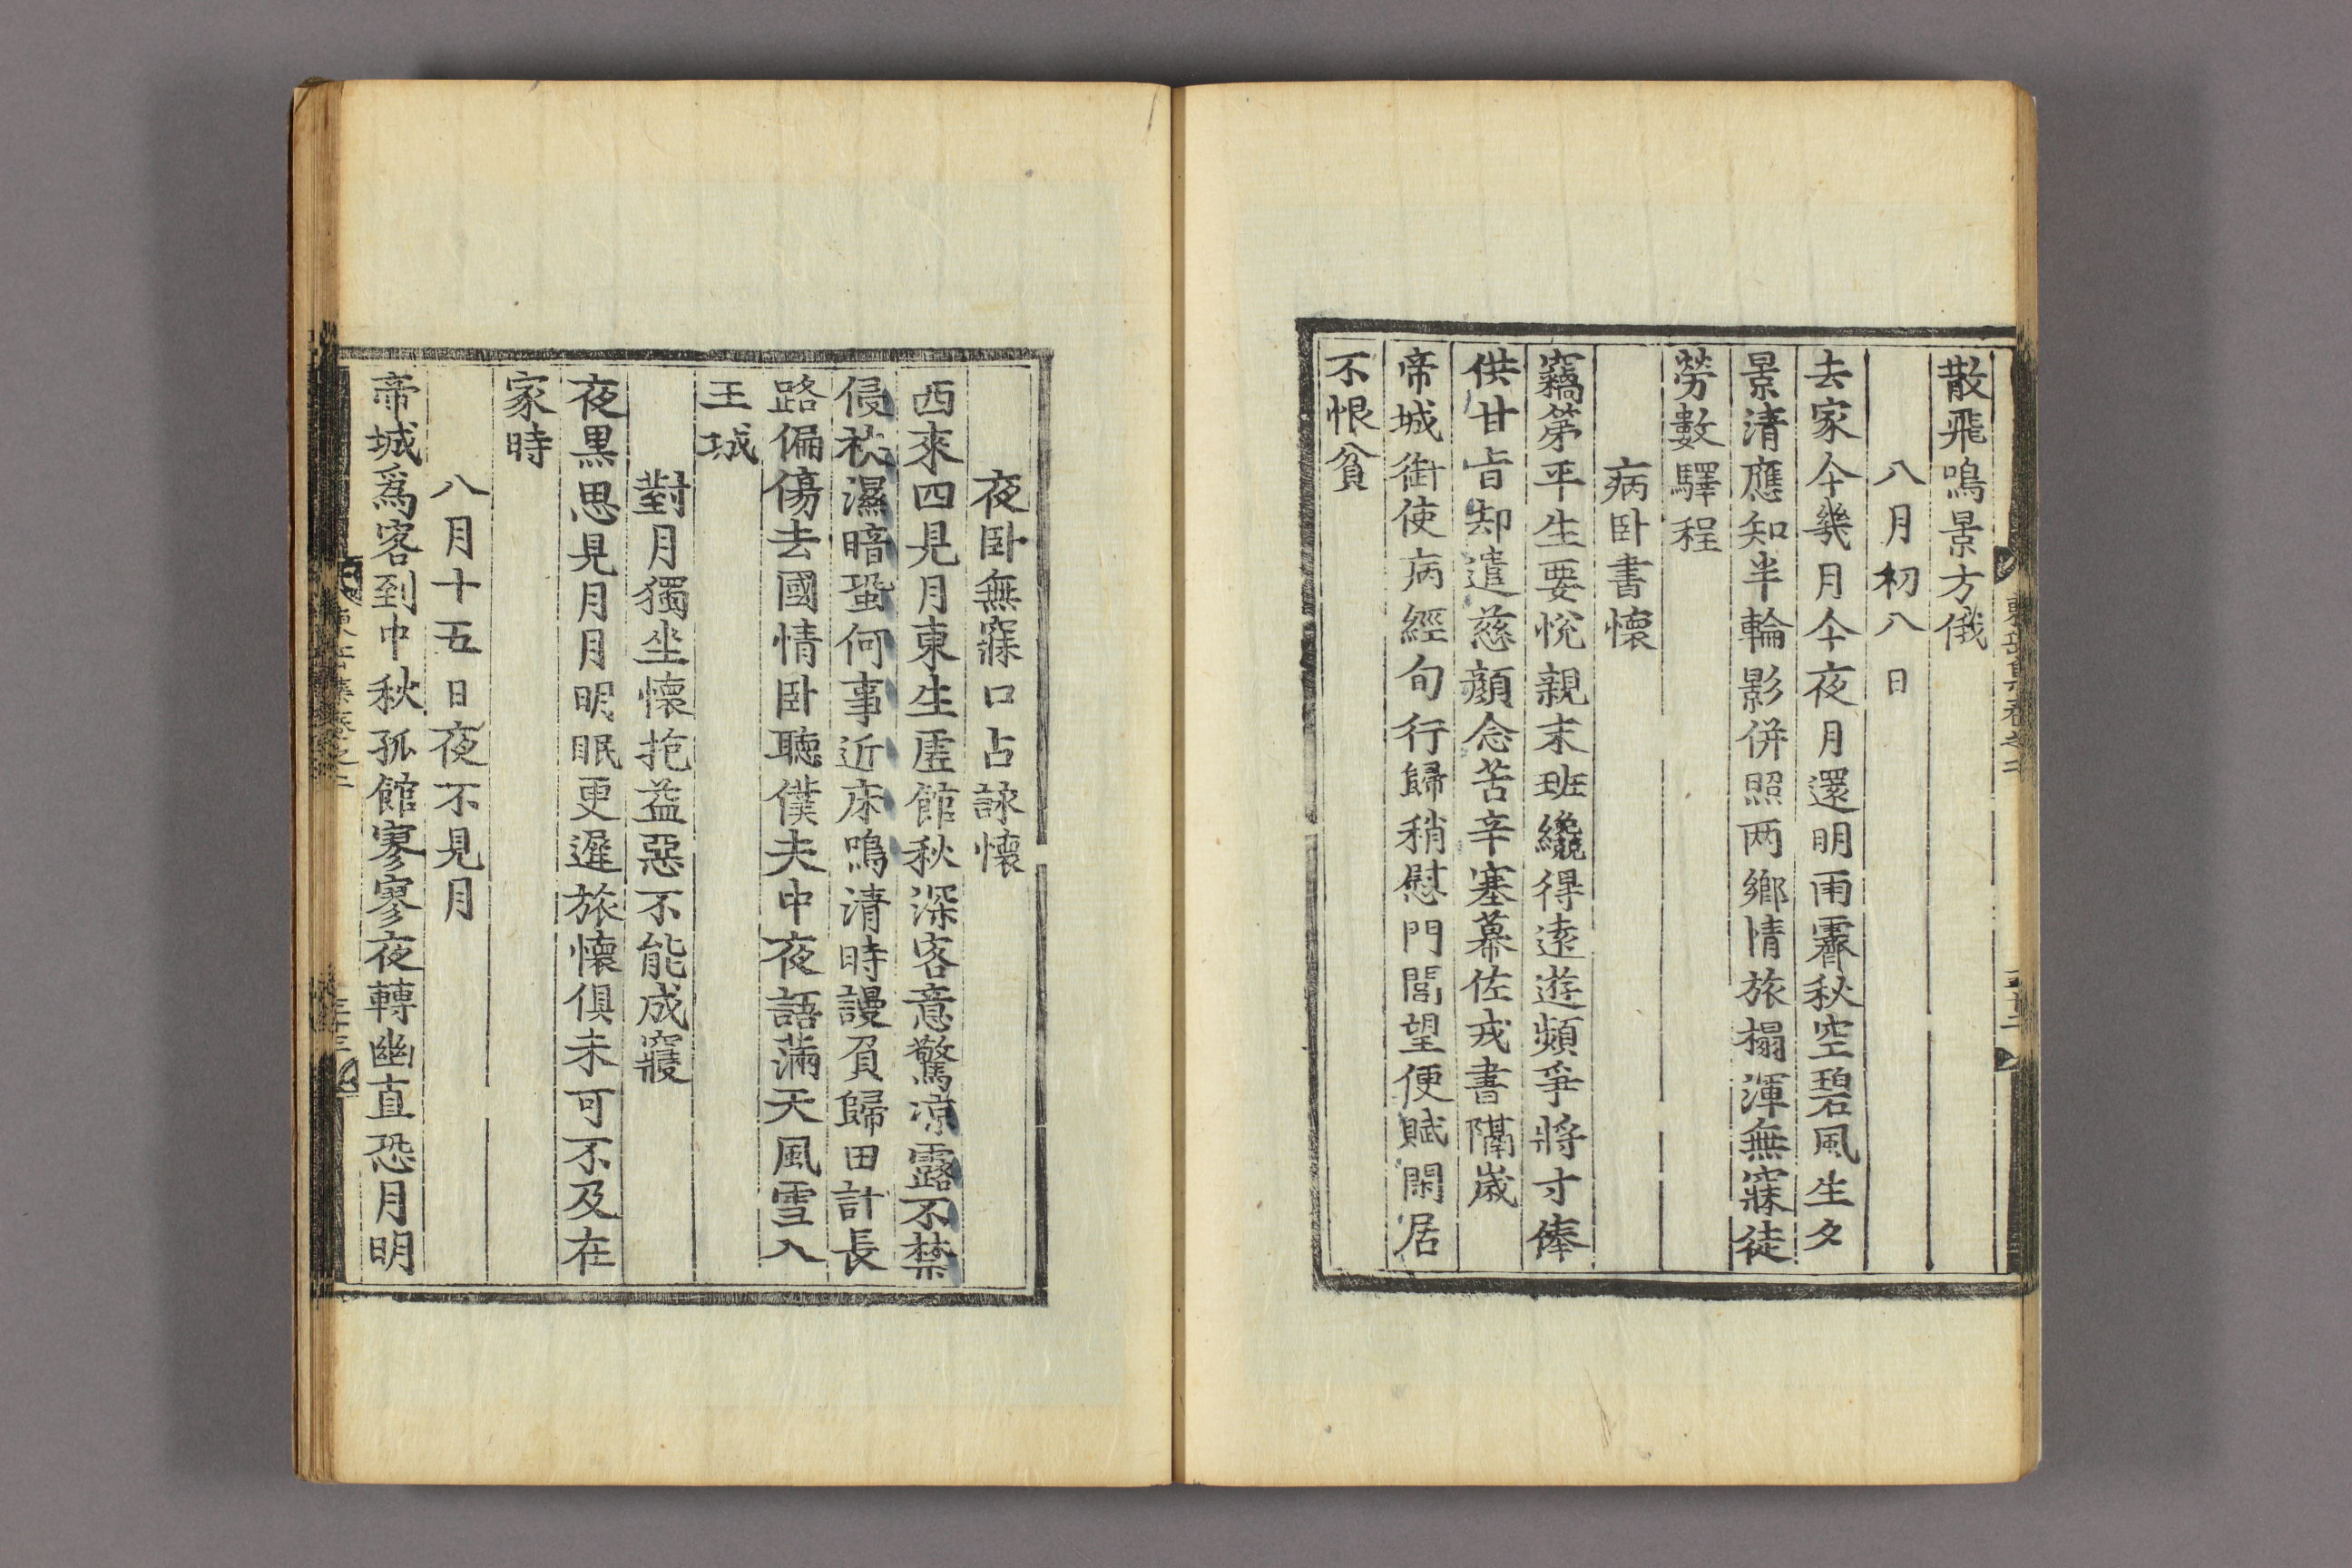 散飛鳴景方俄
八月初八日
去家今幾月今夜月還明雨霽秋空碧風生夕
景清應知半輪影併照两鄉情旅榻渾無寐徒
勞數驛程
病卧書懷
竊第平生要悅親末班纔得遠遊頻爭將寸俸
供甘旨却遣慈顔念苦辛塞幕佐戎書隔歲
帝城銜使病經旬行歸稍慰門閭望便賦閑居
不恨貧
夜卧無寐口占詠懷
西來四見月東生虛館秋深客意驚凉露不禁
侵袂濕暗蛩何事近床鳴清時謾負歸田計長
路偏傷去國情卧聽僕夫中夜語滿天風雪入
王城
對月獨坐懷抱益惡不能成寢
夜黒思見月月明眠更遲旅懷俱未可不及在
家時
八月十五日夜不見月
帝城爲客到中秋孤館寥寥夜轉幽直恐月明